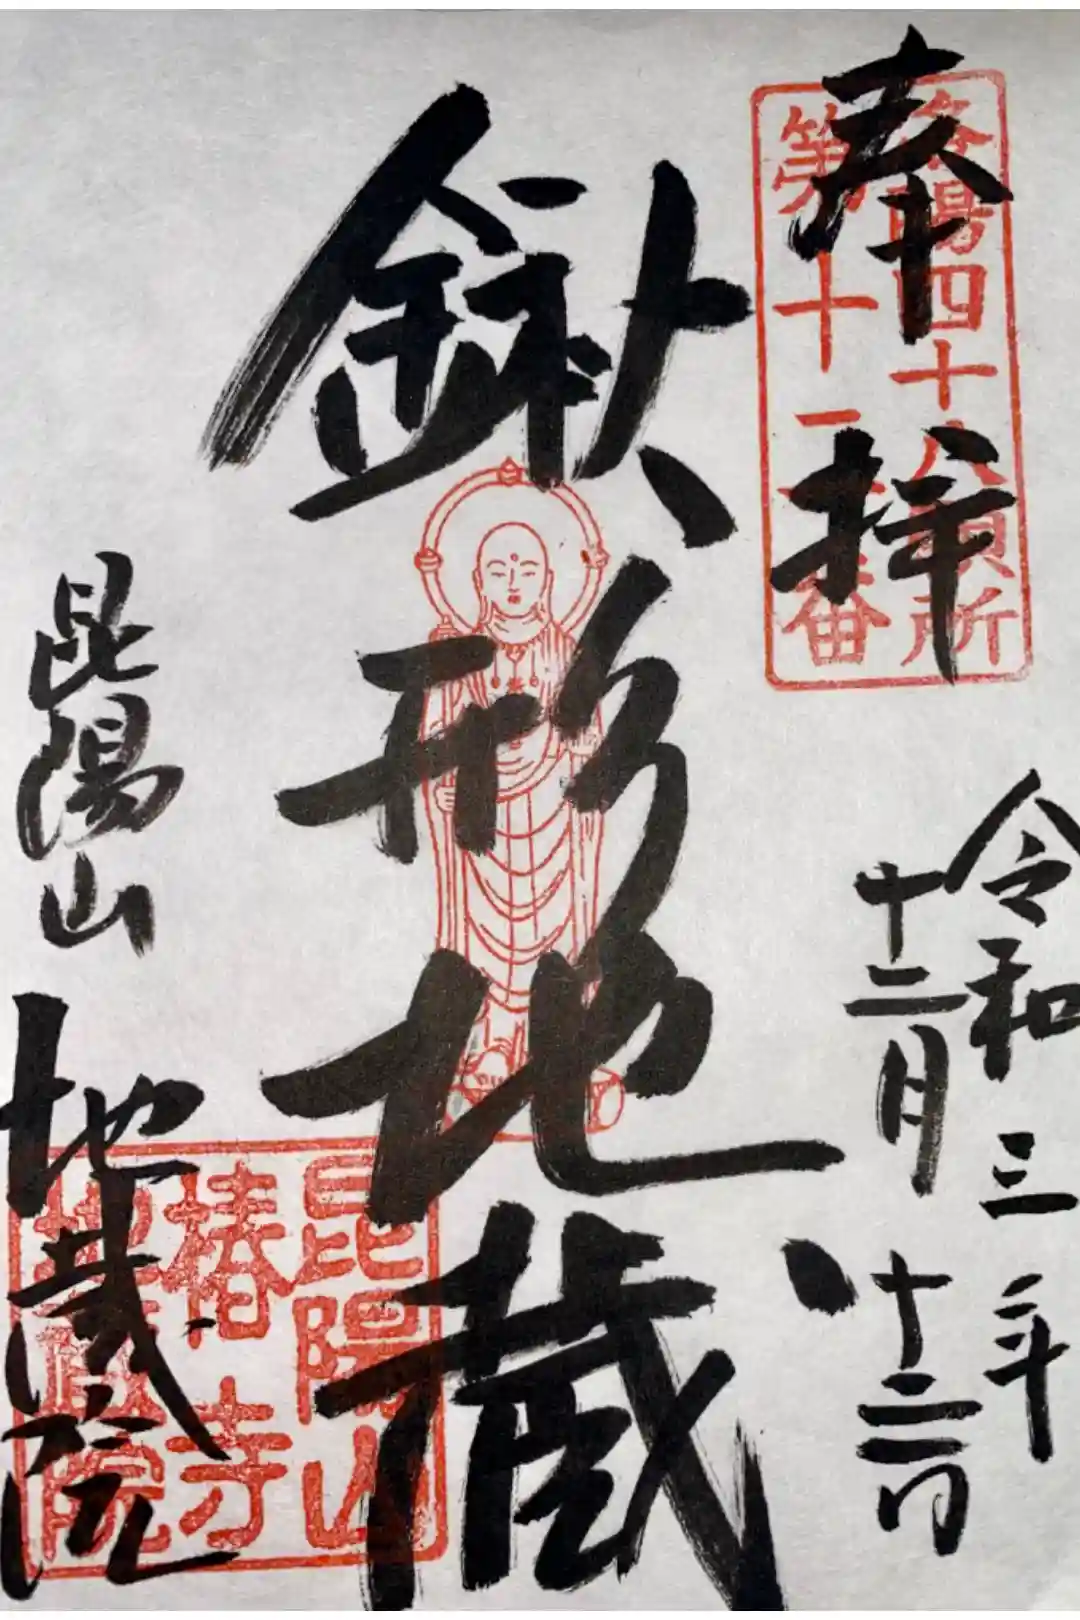 奉拝
洛陽四十八願所
第十二番
令和三年
十二月十二日
鍬形地蔵
昆陽山 地蔵院
昆陽山
椿寺
地蔵院